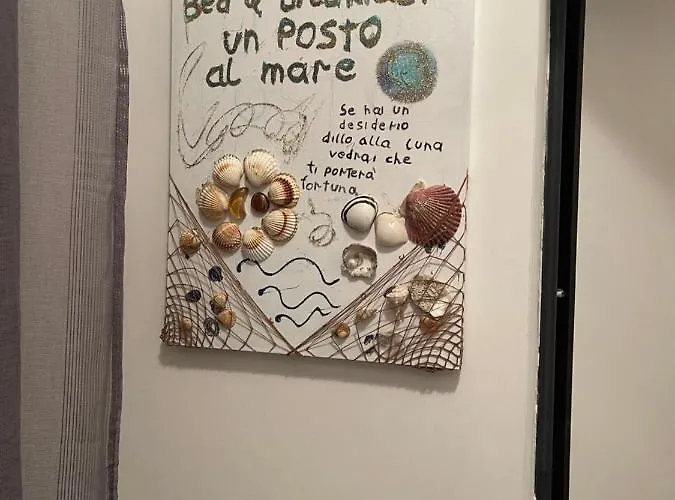 Bed & breakfast
un POSTO
al mare
Se hai un
desiderio
dillo alla luna
vedrai che
ti porterà
fortuna